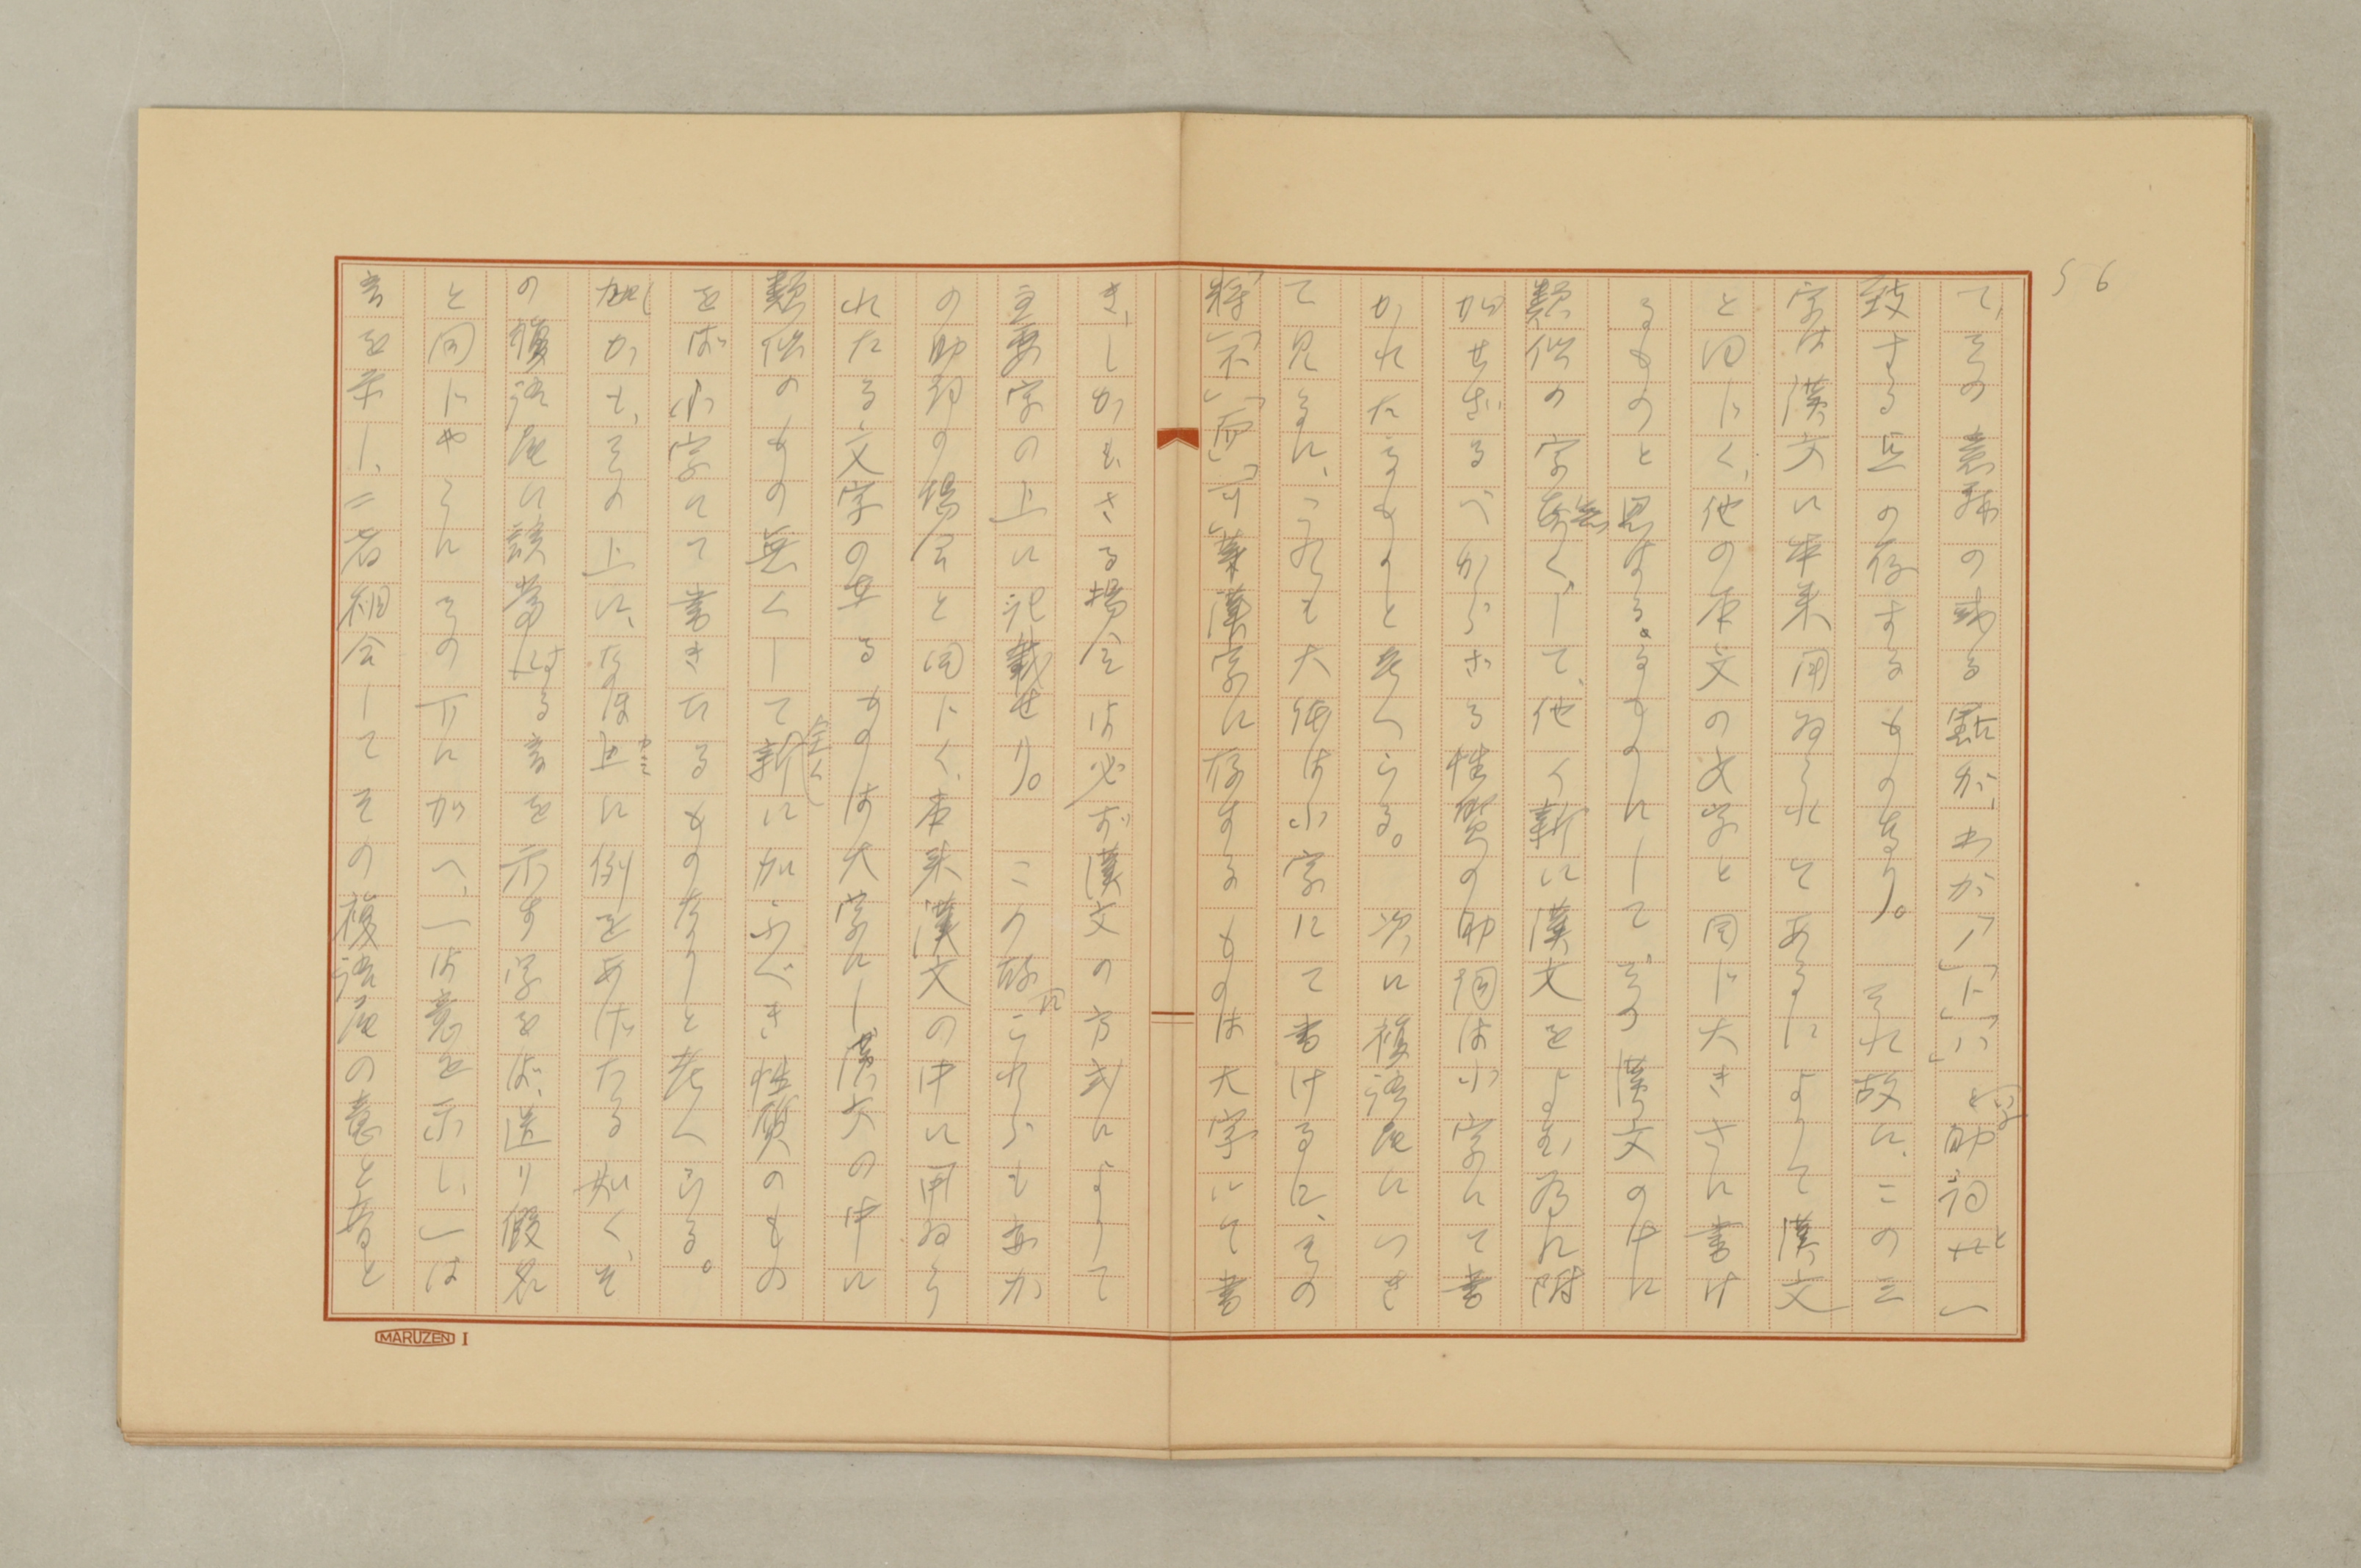 56
て、その意味の或る點が、わが「ノ」「ト」「ハ」等の助詞と一
致する點の存するものあり。それ故に、この三
字は漢文に本来用ゐられてあるによりて漢文
と同じく、他の本文の文字と同じ大きさに書け
るものと思はる。るものにして、漢文の中に
類似の字無くして、他く新に漢文をよむ為に附
加せざるべからざる性質の助詞は小字にて書
かれたるものと考へらる。次に複語尾につき
て見るに、これも大体は小字にて書けるに、その
「將」「不」「而」「可」等漢字に存するものは大字にて書
き、しかもさる場合は必ず漢文の方式によりて
主要字の上に記載せり。この故にこれらも亦か
の助詞の場合と同じく、本来漢文の中に用ゐら
れたる文字の在るものは大字にし漢文の中に
類似のもの無くして全く新に加ふべき性質のもの
をば小字にて書きたるものなりと考へらる。
しかも、その上に、なほ上カミに例をあげたる如く、そ
の複語尾に該當する音を示す字をば、送り假名
と同じやうにその下に加へ、一は意を示し、一は
音を示し、二者相合してその複語尾の意と音と
MARUZEN I